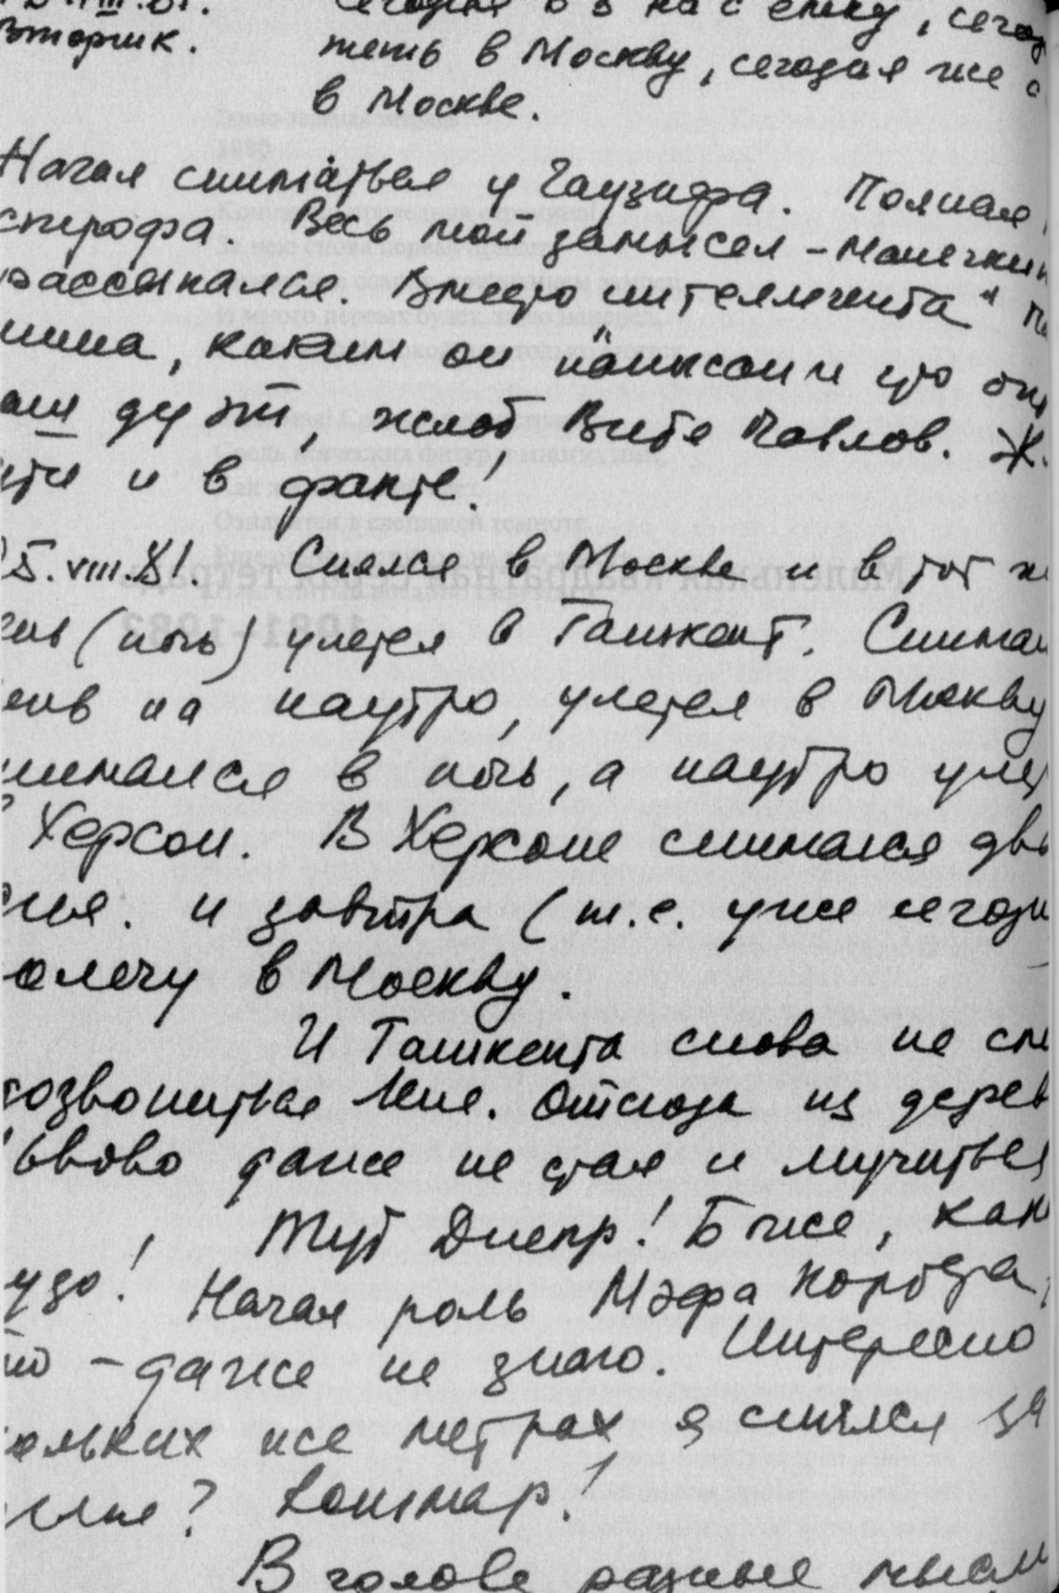 Вторник.
теть в Москву, сегодня же
в Москве.
Начал сниматься у Гаузнера. Полная
строфа. Весь мой замысел -
рассыпался. Вместо интеллигента
каким он написан и
дуэт, жлоб Витя Павлов. Ж
и в факте!
5.VIII.81. Снялся в Москве и в тот ж
(ночь) улетел в Ташкент. Снима
на наутро, улетел в Москву
нимался в ночь, а наутро уле
Херсон. В Херсоне снимался дв
ня. и завтра (т.е. уже сегодн
лечу в Москву.
И Ташкента снова не см
озвониться Лене. Отсюда из дерев
ьвово даже не стал и мучиться
Тут Днепр! Боже, как
удо! Начал роль Мэфа
то - даже не знаю. Интересно
ольких же метрах я снялся за
Кошмар!
В голове разные мысли